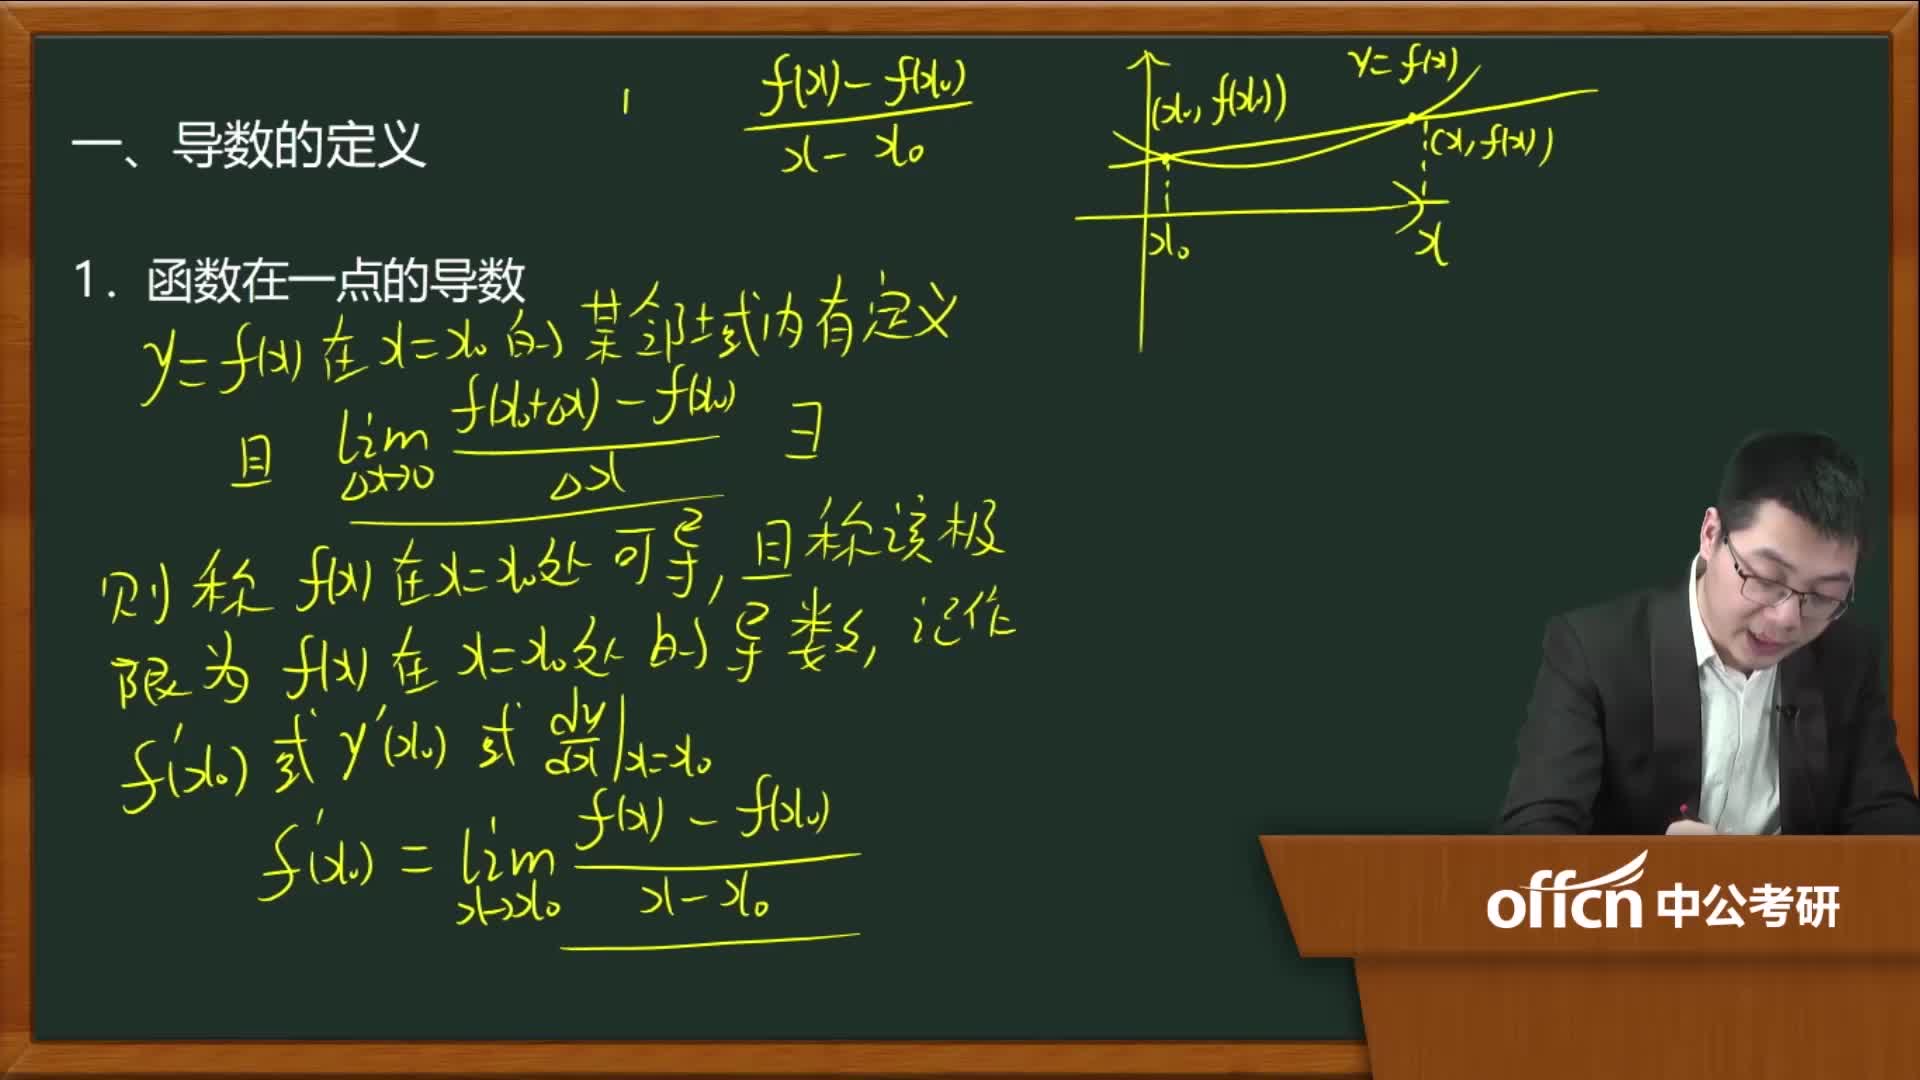 一、导数的定义
f(x)-f(x₀)
x-x₀
y=f(x)
(x₀, f(x₀))
(x, f(x))
x₀
x
1. 函数在一点的导数
y=f(x)在x=x₀的某邻域内有定义
且 lim Δx→0 f(x₀+Δx)-f(x₀) / Δx ∃
则称f(x)在x=x₀处可导,且称该极
限为f(x)在x=x₀处的导数,记作
f'(x₀)或y'(x₀)或dy/dx|x=x₀
f'(x₀)=lim x→x₀ f(x)-f(x₀) / x-x₀
offcn 中公考研